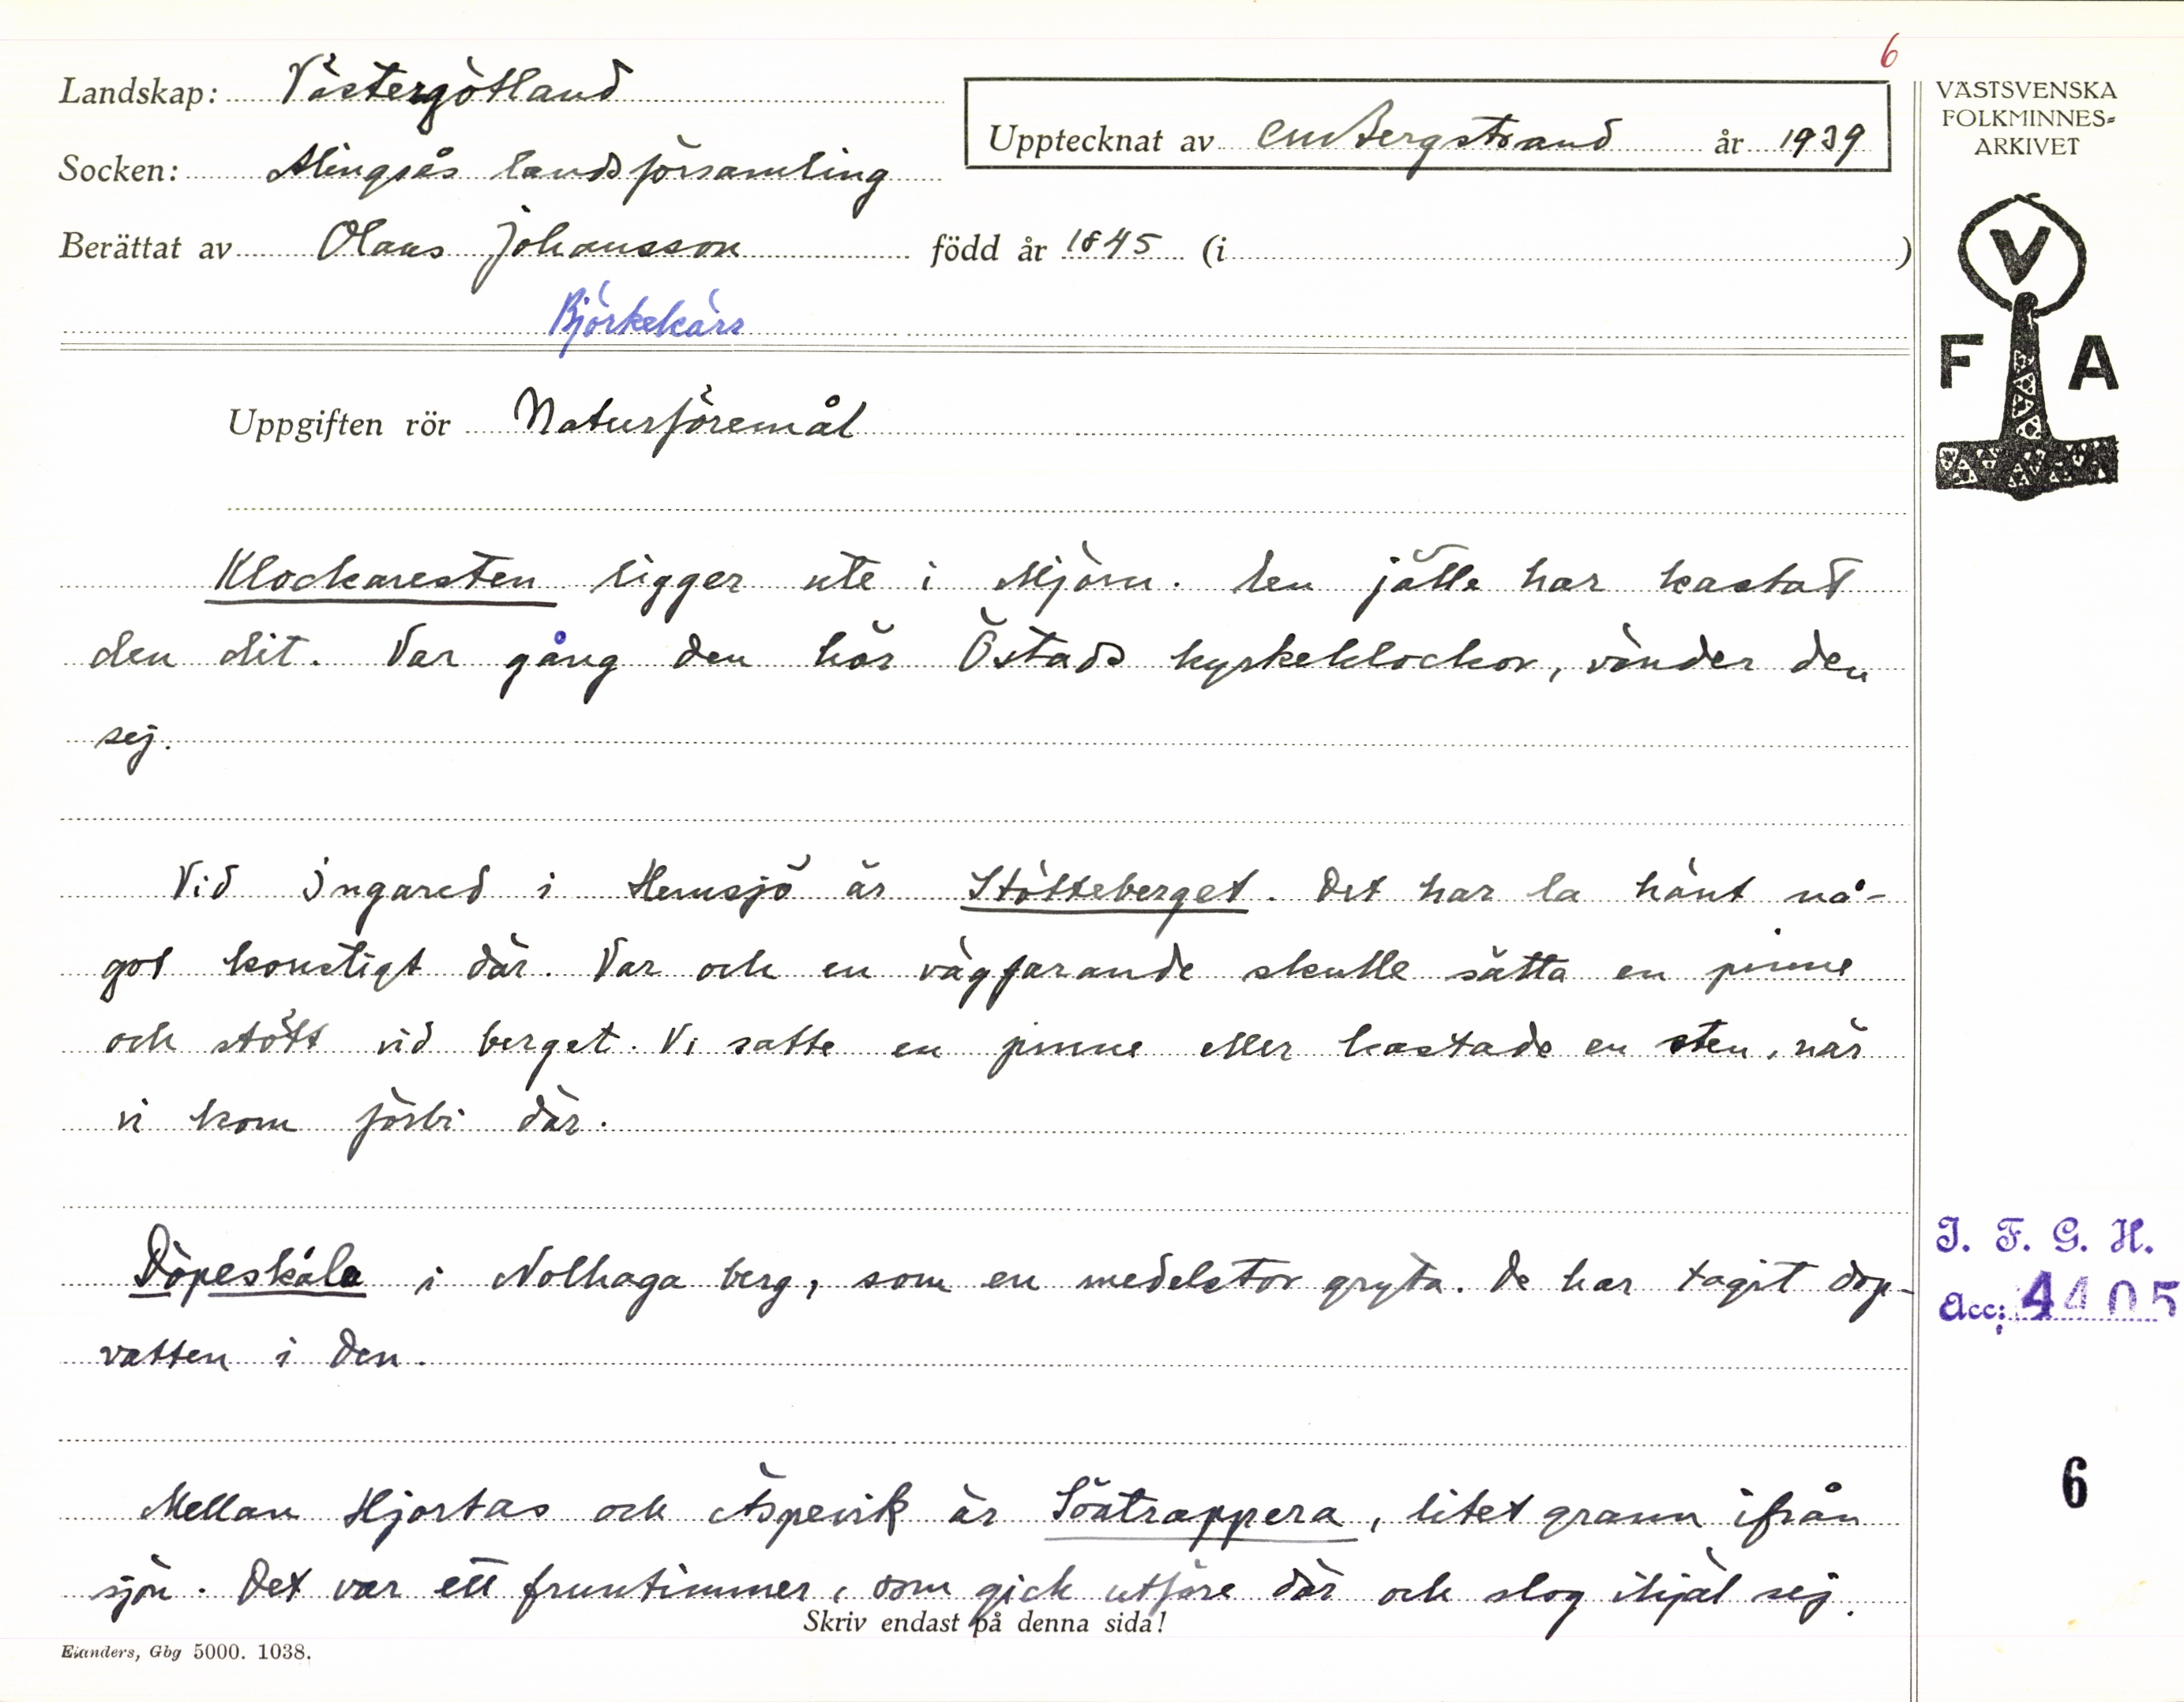 6
Landskap: Västergötland
Upptecknat av CM Bergstrand år 1939
Socken: Alingsås landsförsamling
Berättat av Olaus Johansson född år 1845 (i )
Björkekärr
VÄSTSVENSKA
FOLKMINNES=
ARKIVET
V
F A
Uppgiften rör Naturföremål
Klockaresten ligger ute i Mjörn. En jätte har kastat
den dit. Var gång den hör Östads kyrkeklockor, vänder den
sej.
Vid Ingared i Hemsjö är Stötteberget. Det har la hänt nå-
got konstigt där. Var och en vägfarande skulle sätta en pinne
och stött vid berget. Vi satte en pinne eller kastade en sten, när
vi kom förbi där.
Döpeskåla i Nolhaga berg, som en medelstor gryta. De har tagit dop-
vatten i den.
Mellan Hjortas och Äspevik är Söatrappera, litet grann ifrån
sjön. Det var ett fruntimmer, som gick utföre där och slog ihjäl sej.
Skriv endast på denna sida!
Elanders, Gbg 5000. 1038.
I. F. G. H.
Acc: 4405
6